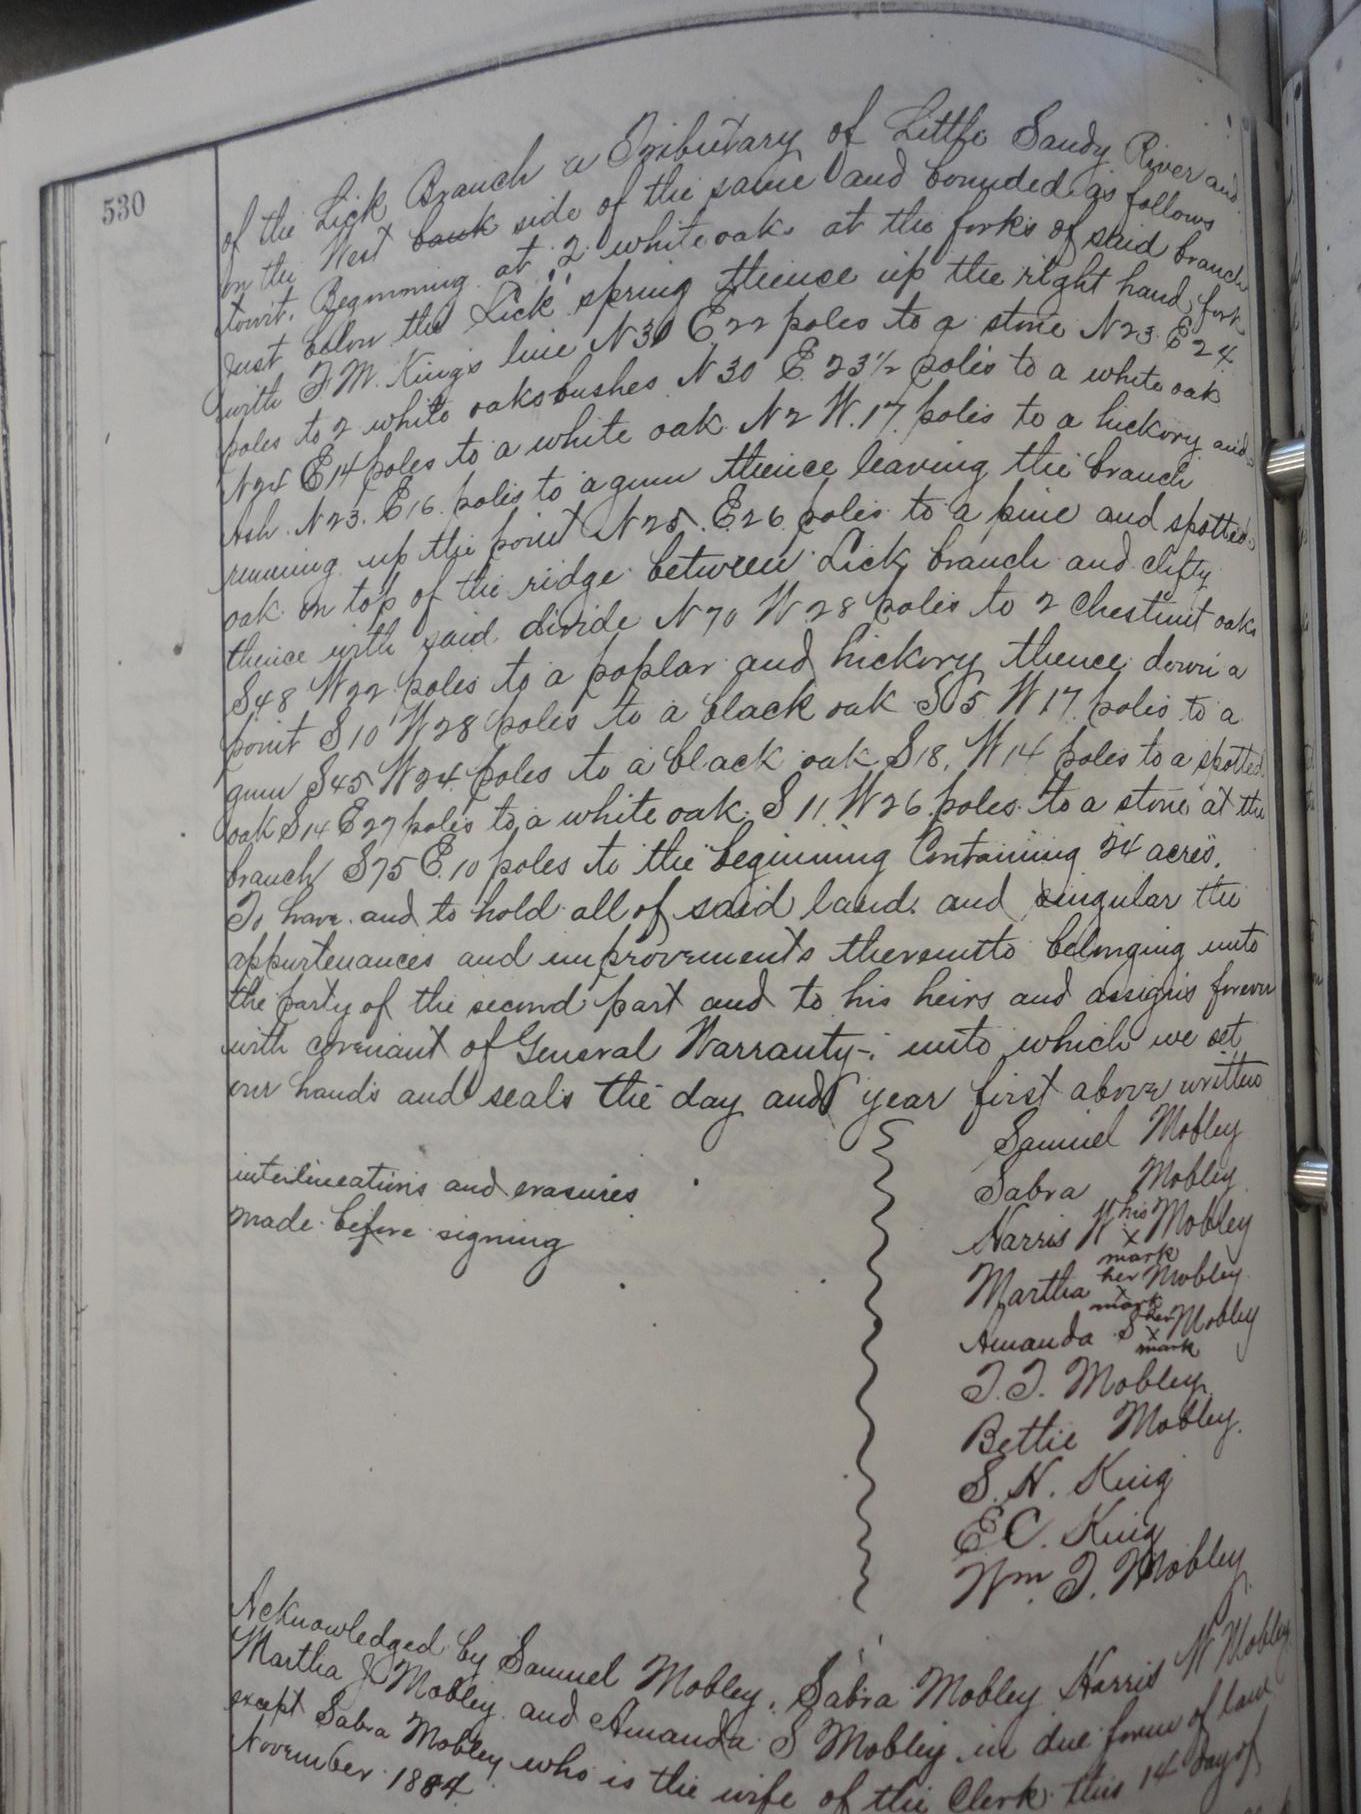 530
of the Lick Branch a Tributary of Little Sandy River and
on the West bank side of the same and bounded as follows
towit. Beginning at 2 white oaks at the forks of said branch
Just below the Lick spring thence up the right hand fork
with F. M. Kings line N 30 E 22 poles to a stone N 23 E 24
poles to 2 white oaks bushes N 30 E. 23½ poles to a white oak
N 24 E 14 poles to a white oak N 2 W. 17 poles to a hickory and
Ash N 23. E 16. poles to a gum thence leaving the branch
running up the point N 25. E. 26 poles to a pine and spotted
oak on top of the ridge between Lick branch and clifty
thence with said divide N 70 W 28 poles to 2 Chestnut oaks
S 48 W 22 poles to a poplar and hickory thence down a
point S 10 W 28 poles to a black oak S 5 W 17 poles to a
gum S 45 W 24 poles to a black oak S 18. W 14 poles to a spotted
oak S 14 E 27 poles to a white oak. S 11 W 26 poles to a stone at the
branch S 75 E. 10 poles to the beginning Containing 24 acres.
To have and to hold all of said land and singular the
appurtenances and improvements thereunto belonging unto
the party of the second part and to his heirs and assigns forever
with covenant of General Warranty; unto which we set
our hands and seals the day and year first above written
Samuel Mobley
interlineations and erasures
made before signing
Sabra Mobley
Harris W his x mark Mobley
Martha her x mark Mobley
Amanda S her x mark Mobley
T. T. Mobley
Bettie Mobley.
S. N. King
E C. King
Wm T. Mobley
Acknowledged by Samuel Mobley, Sabra Mobley Harris W Mobley
Martha J Mobley and Amanda S Mobley in due form of law
except Sabra Mobley who is the wife of the Clerk this 14 day of
November 1884